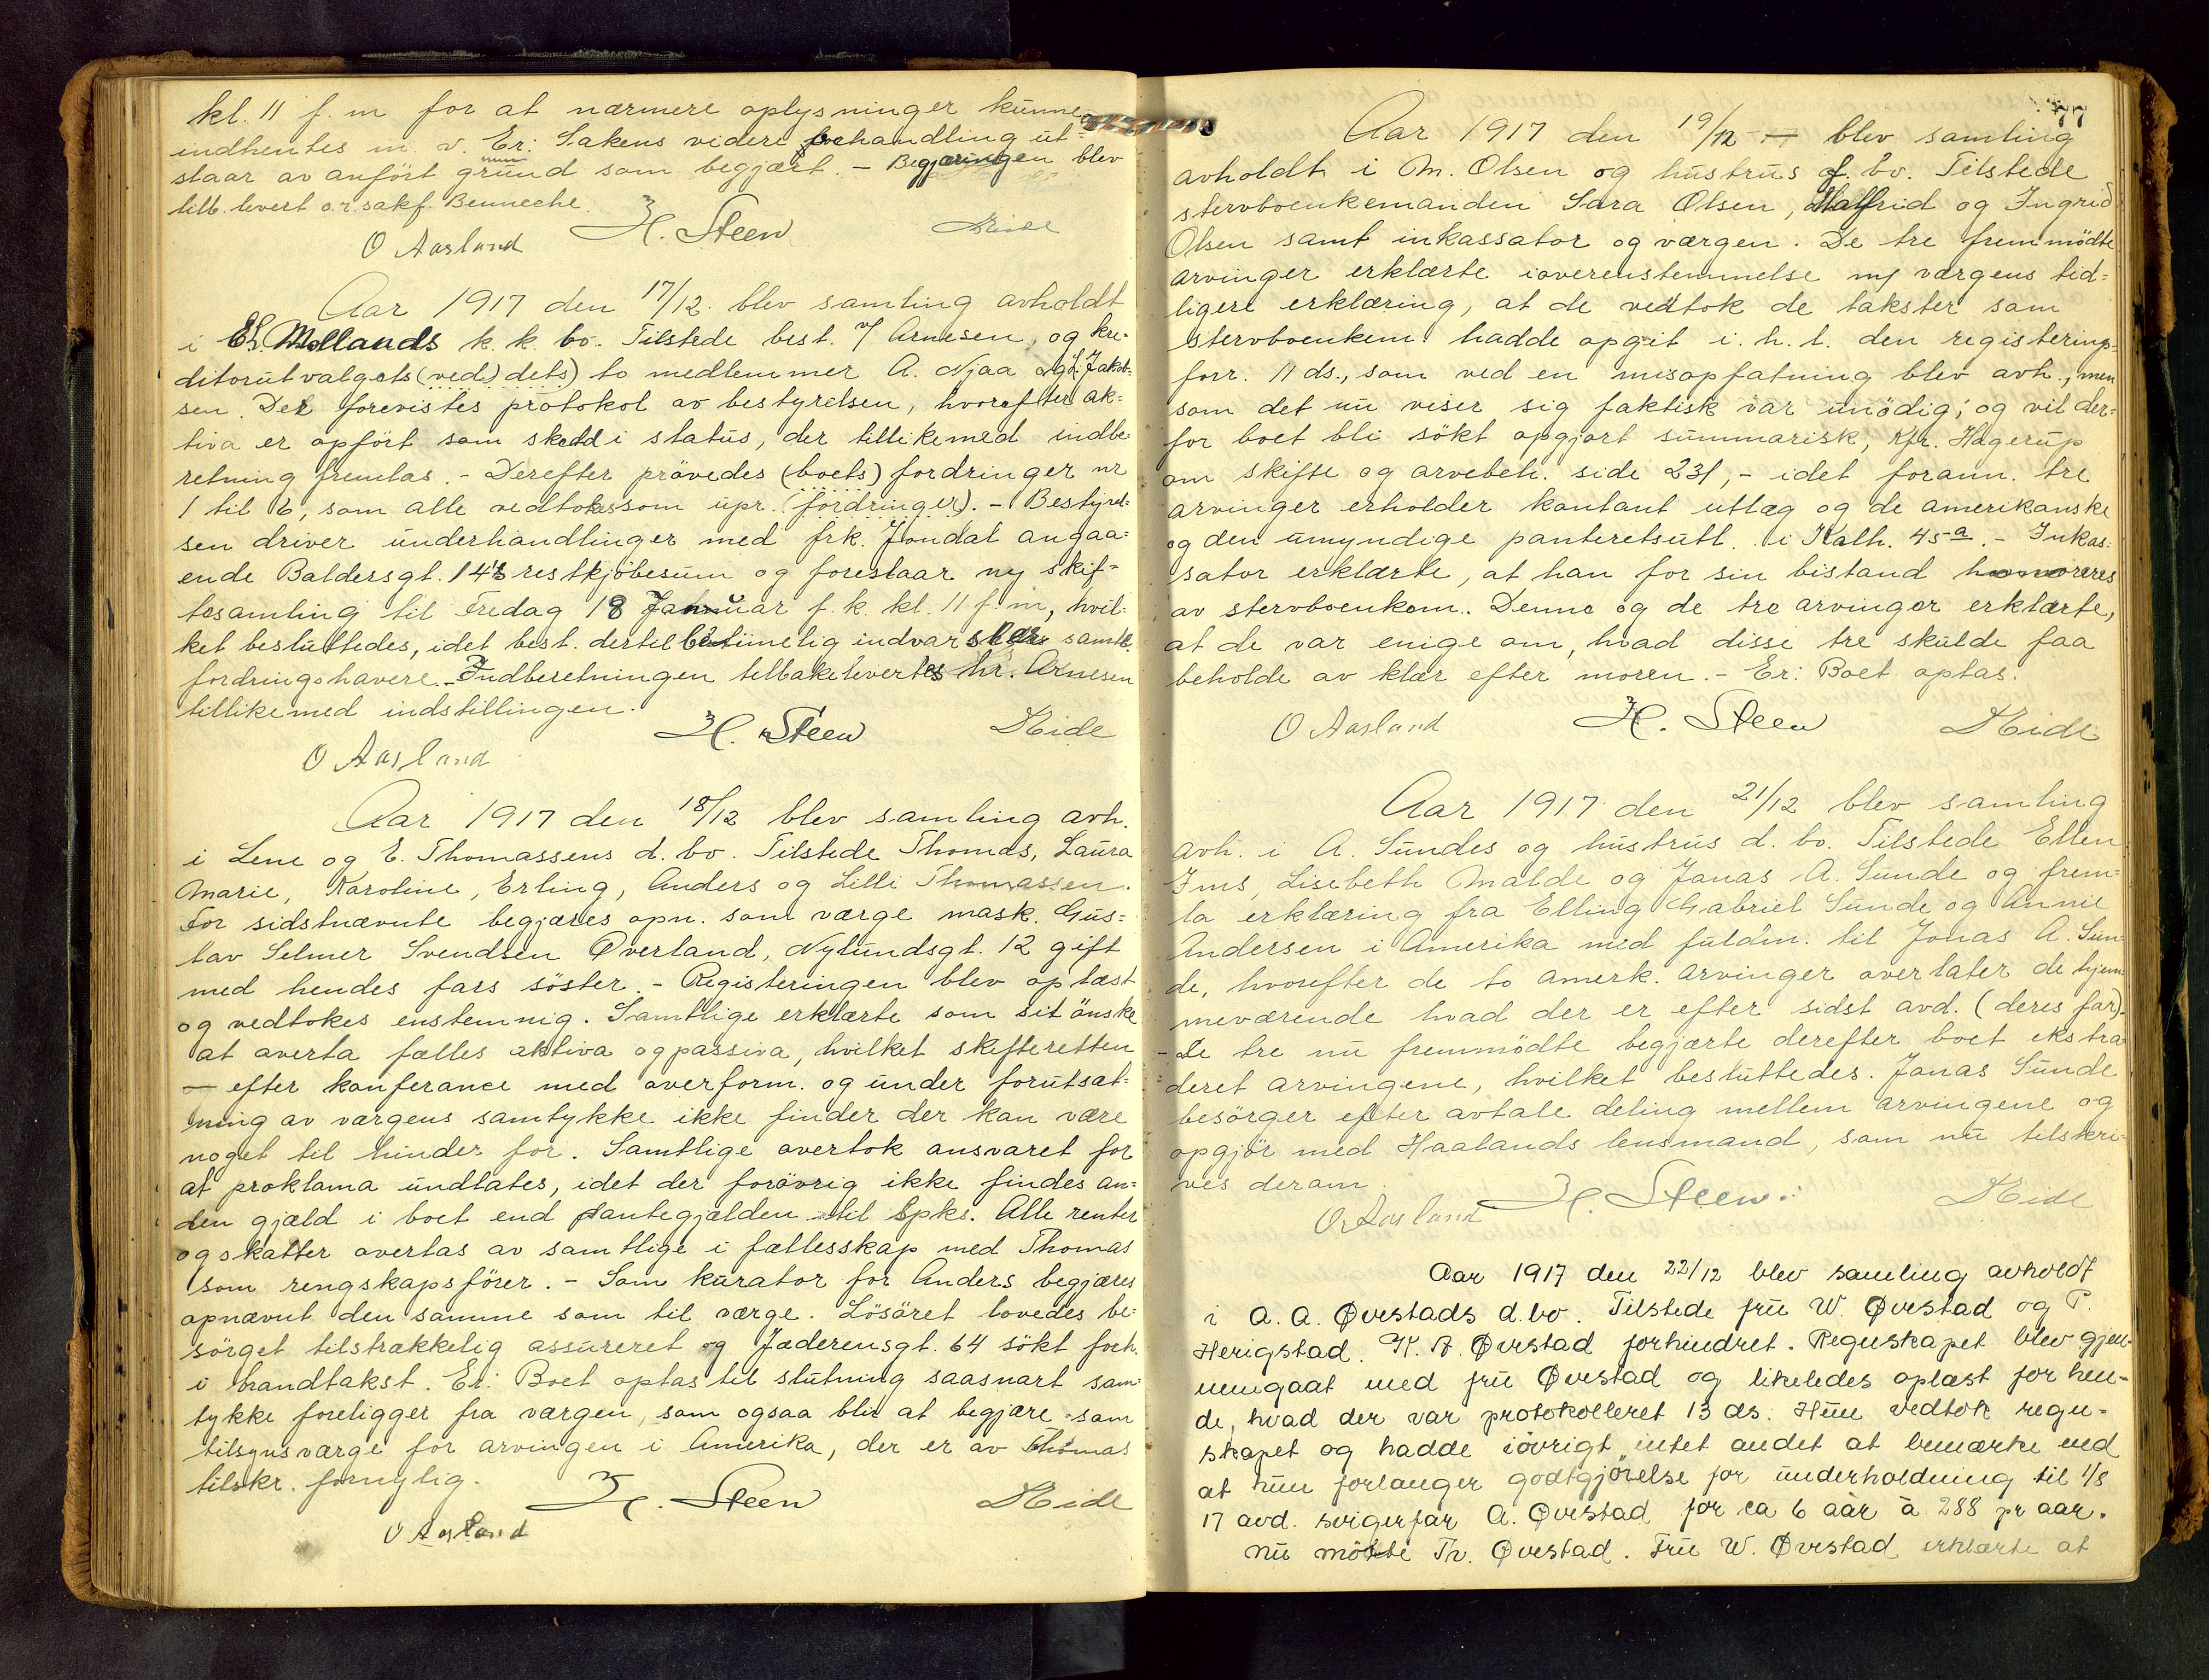 kl. 11 f. m for at nærmere oplysninger kunne
indhentes m. v. Er: Sakens videre forhandling ut-
staar av anfört grund som begjært. - Begjæringen blev
tilb. levert o.r.sakf. Benneche.
O Aarland H. Steen Eide
Aar 1917 den 17/12. blev samling avholdt
i El. Møllands k. k. bo. Tilstede best. v/ Arnesen, og kre-
ditorutvalgets (ved) dets) to medlemmer A. Njaa og L. Jakob-
sen. Der forevistes protokol av bestyrelsen, hvorefter ak-
tiva er opfört som skedd i status, der tillikemed indbe-
retning fremlas. - Derefter prövedes (boets) fordringer nr
1 til 6, som alle vedtokes som upr. (fordringer). - Bestyrel-
sen driver underhandlinger med frk. Jondal angaa-
ende Baldersgt. 14s restkjöbesum og foreslaar ny skif-
tesamling til Fredag 18 Januar f. k. kl. 11 f. m, hvil-
ket besluttedes, idet best. dertil betimelig indvarsler samtl.
fordringshavere. - Indberetningen tilbakelevertes hr. Arnesen
tillikemed indstillingen.
H. Steen Eide
O Aarland
Aar 1917 den 18/12 blev samling avh.
i Lene og E. Thomassens d. bo. Tilstede Thomas, Laura
Marie, Karoline, Erling, Anders og Lilli Thomassen.
For sidstnævnte begjæres opn. som værge mask. Gus-
tav Selmer Svendsen Øverland, Nylundsgt. 12 gift
med hendes fars söster. - Registeringen blev oplæst
og vedtokes enstemmig. Samtlige erklærte som sit önske
at overta fælles aktiva og passiva, hvilket skifteretten
- efter konferance med overform. og under forutsæt-
ning av værgens samtykke ikke finder der kan være
noget til hinder for. Samtlige overtok ansvaret for
at proklama undlates, idet der forövrig ikke findes an-
den gjæld i boet end pantegjælden til Spks. Alle renter
og skatter overtas av samtlige i fællesskap med Thomas
som rengskapsförer. - Som kurator for Anders begjæres
opnævnt den samme som til værge. Lösöret lovedes be-
sörget tilstrækkelig assureret og Jæderensgt. 64 sökt forh.
i brandtakst. Er: Boet optas til slutning saasnart sam-
tykke foreligger fra værgen, som ogsaa blir at begjære som
tilsynsværge for arvingen i Amerika, der er av Thomas
tilskr. fornylig.
H. Steen Eide
O Aarland
77
Aar 1917 den 19/12 - blev samling
avholdt i M. Olsen og hustrus d. bo. Tilstede
stervboenkemanden Sara Olsen, Halfrid og Ingrid
Olsen samt inkassator og værgen. De tre fremmödte
arvinger erklærte i overenstemmelse m/ værgens tid-
ligere erklæring, at de vedtok de takster som
stervboenkem. hadde opgit i. h. t. den registerings-
forr. 11 ds., som ved en misopfatning blev avh., men
som det nu viser sig faktisk var unödig; og vil der-
for boet bli sökt opgjort summarisk, kfr. Hagerup
om skifte og arvebeh. side 231, - idet forann. tre
arvinger erholder kontant utlæg og de amerikanske
og den umyndige panteretsutl. i Kalh. 45 a. - Inkas-
sator erklærte, at han for sin bistand honoreres
av stervboenkem. Denne og de tre arvinger erklærte,
at de var enige om, hvad disse tre skulde faa
beholde av klær efter moren. - Er: Boet optas.
O Aarland H. Steen Eide
Aar 1917 den 21/12 blev samling
avh. i A. Sundes og hustrus d. bo. Tilstede Ellen
Ims, Lisebeth Malde og Jonas A. Sunde og frem-
la erklæring fra Elling Gabriel Sunde og Annie
Andersen i Amerika med fuldm. til Jonas A. Sun-
de, hvorefter de to amerk. arvinger overlater de hjem-
meværende hvad der er efter sidst avd. (deres far).
- De tre nu fremmödte begjærte derefter boet ekstra-
deret arvingene, hvilket besluttedes. Jonas Sunde
besörger efter avtale deling mellem arvingene og
opgjör med Haalands lensmand, som nu tilskri-
ves derom.
O. Aarland H. Steen Eide
Aar 1917 den 22/12 blev samling avholdt
i A. A. Øvestads d.bo. Tilstede fru W. Øvestad og P.
Herigstad. K. A. Øvestad forhindret. Regnskapet blev gjen-
nemgaat med fru Øvestad og likeledes oplæst for hen-
de, hvad der var protokolleret 13 ds. Hun vedtok regn-
skapet og hadde iövrigt intet andet at bemærke end
at hun forlanger godtgjörelse for underholdning til 1/8
17 avd. svigerfar A. Øvestad for ca 6 aar à 288 pr aar.
Nu mötte Tv. Øvestad. Fru W. Øvestad erklærte at